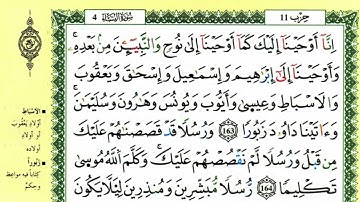 حزب 11
سورة النساء 4
إِنَّا أَوْحَيْنَا إِلَيْكَ كَمَا أَوْحَيْنَا إِلَىٰ نُوحٍ وَالنَّبِيِّـۧنَ مِنْ بَعْدِهِۦ
وَأَوْحَيْنَا إِلَىٰ إِبْرَٰهِيمَ وَإِسْمَٰعِيلَ وَإِسْحَٰقَ وَيَعْقُوبَ
وَالْأَسْبَاطِ وَعِيسَىٰ وَأَيُّوبَ وَيُونُسَ وَهَٰرُونَ وَسُلَيْمَٰنَ
وَءَاتَيْنَا دَاوُۥدَ زَبُورًا 163 وَرُسُلًا قَدْ قَصَصْنَٰهُمْ عَلَيْكَ
مِن قَبْلُ وَرُسُلًا لَّمْ نَقْصُصْهُمْ عَلَيْكَ وَكَلَّمَ اللَّهُ مُوسَىٰ
تَكْلِيمًا 164 رُّسُلًا مُّبَشِّرِينَ وَمُنذِرِينَ لِئَلَّا يَكُونَ
الأسباط
أولاد يعقوب
أو أولاد
أولاده
زبورا
كتابا فيه مواعظ
وحكم